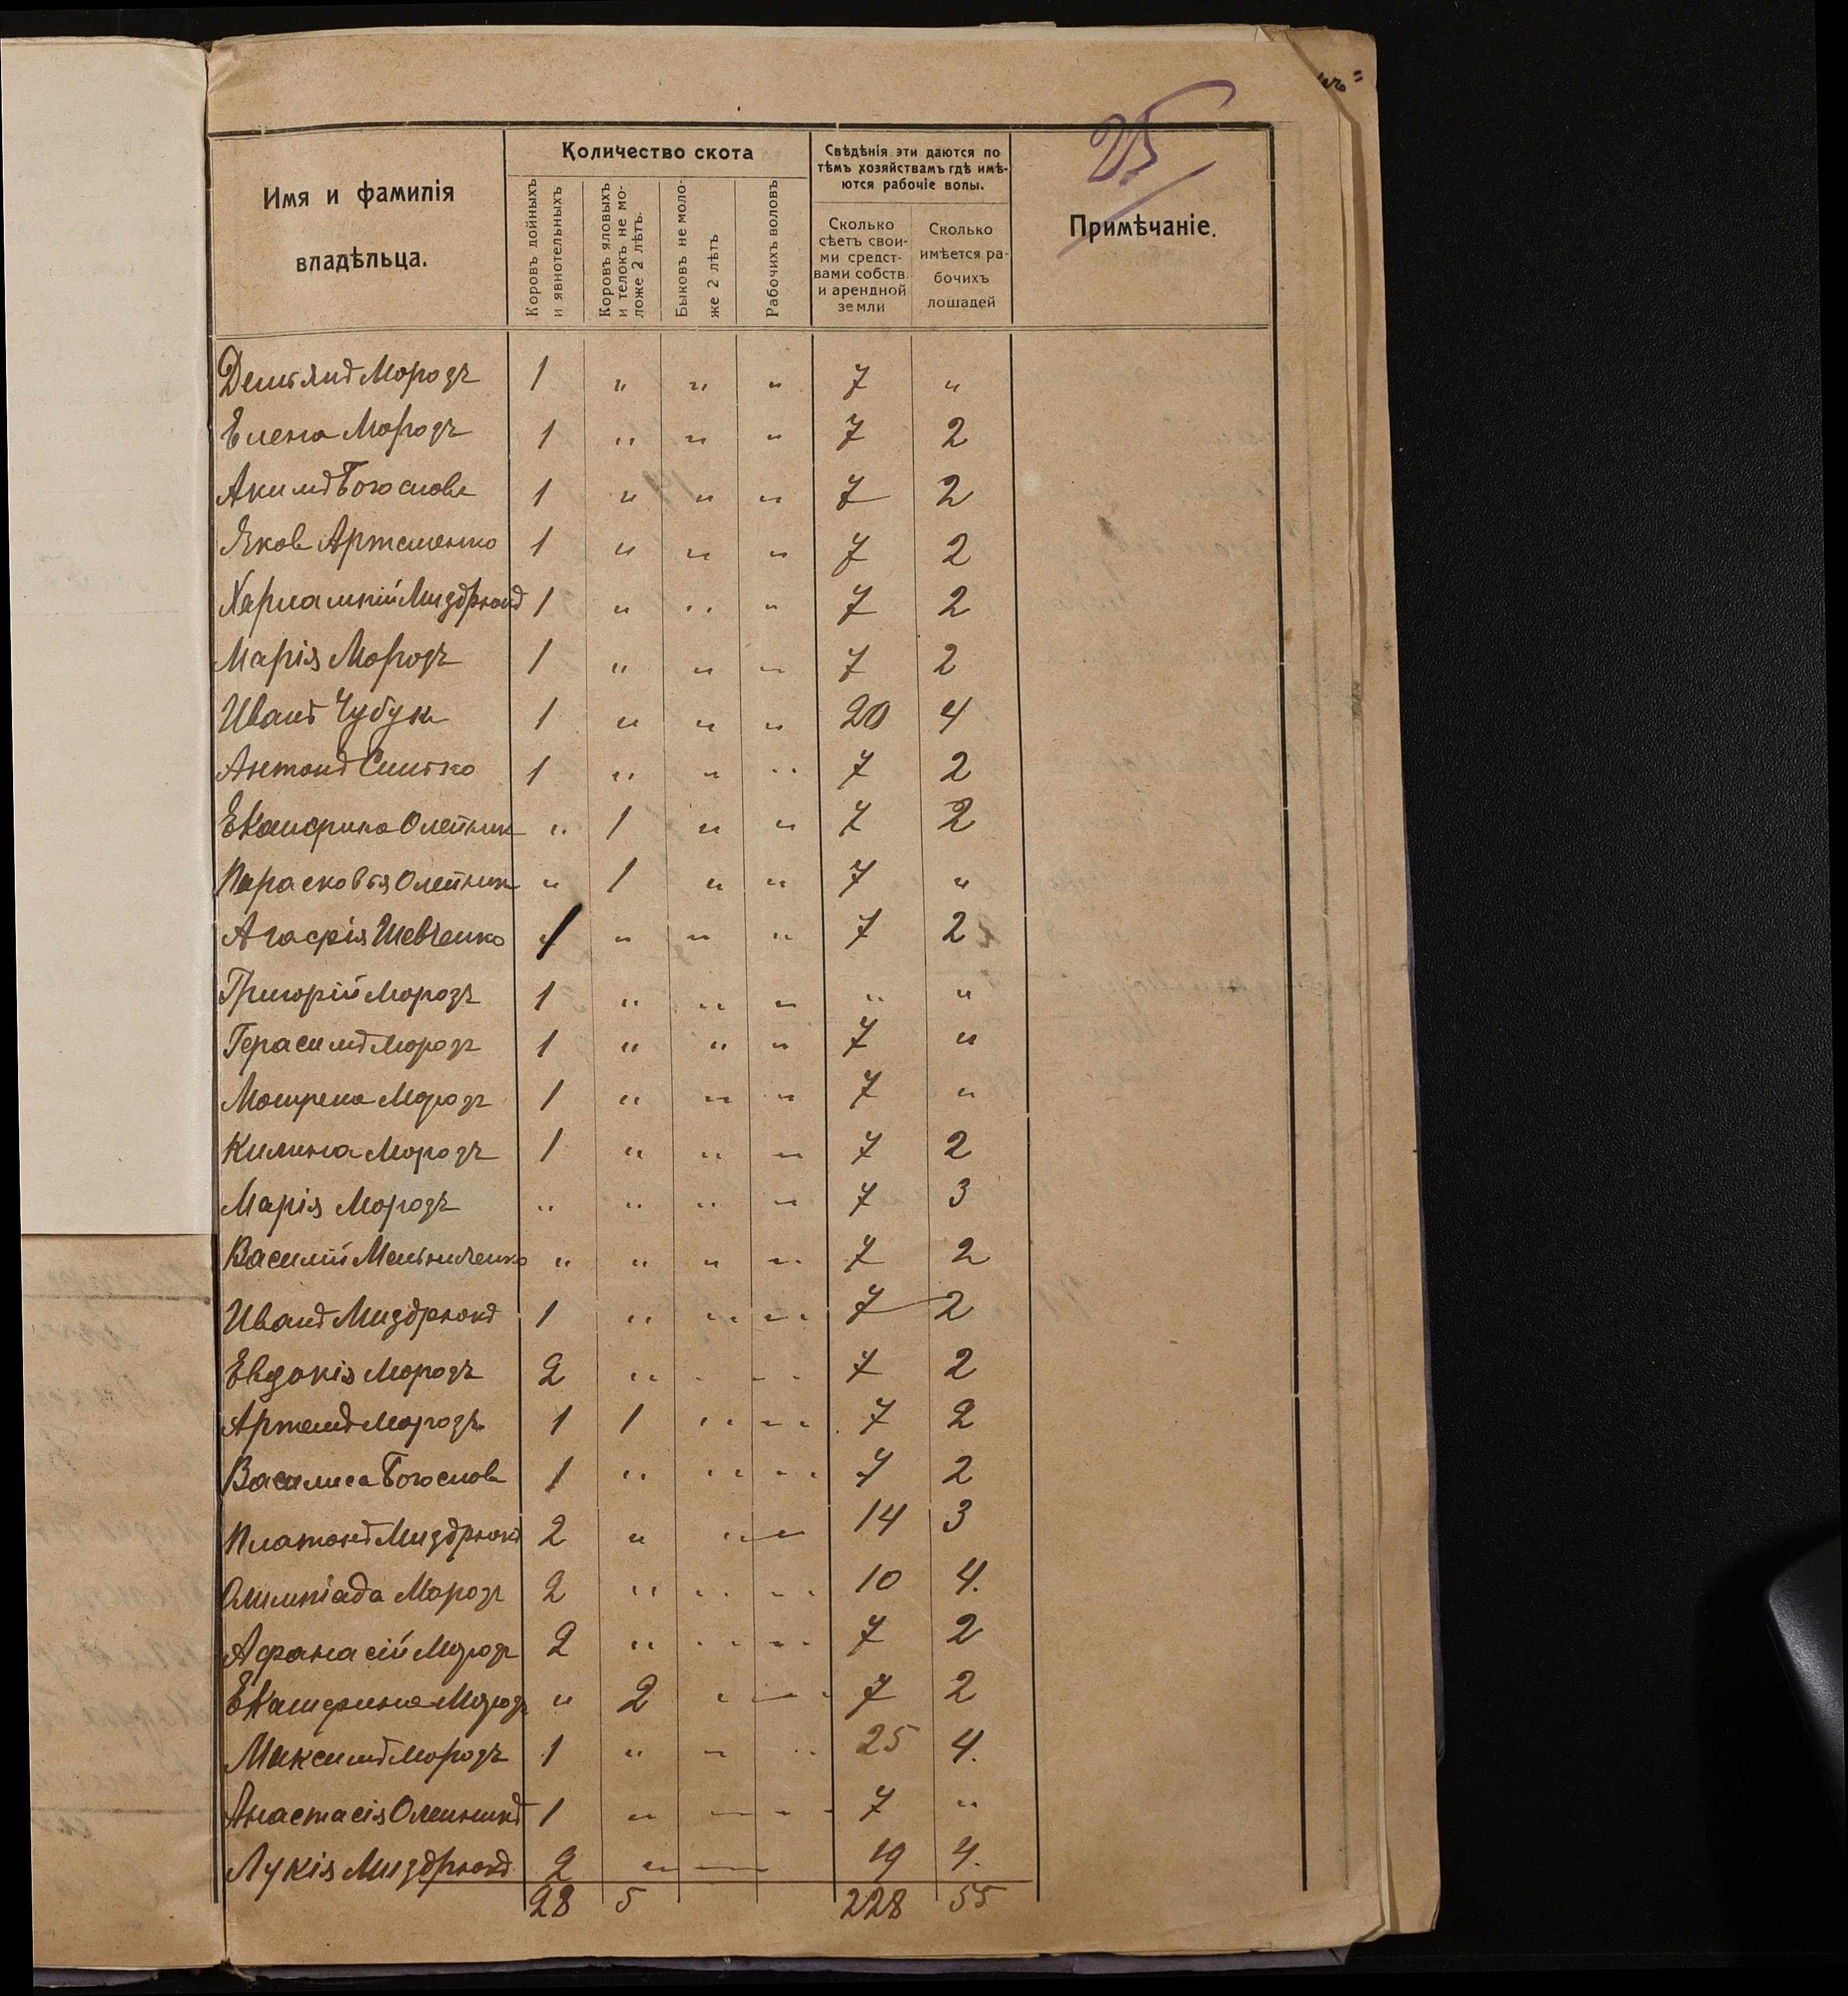 25
Имя и фамилія владѣльца.
Количество скота
Коровъ дойныхъ и явнотельныхъ
Коровъ яловыхъ и телокъ не моложе 2 лѣтъ.
Быковъ не моложе 2 лѣтъ
Рабочихъ воловъ
Свѣдѣнія эти даются по тѣмъ хозяйствамъ гдѣ имѣются рабочіе волы.
Сколько сѣетъ своими средствами собств. и арендной земли
Сколько имѣется рабочихъ лошадей
Примѣчаніе.
Демьянъ Морозъ 1 " " " 7 "
Елена Морозъ 1 " " " 7 2
Акимъ Богословъ 1 " " " 7 2
Яковъ Артеменко 1 " " " 7 2
Харлампій Миздрюкъ 1 " " " 7 2
Марія Морозъ 1 " " " 7 2
Иванъ Чубукъ 1 " " " 20 4
Антонъ 1 " " " 7 2
Екатерина Олейник " 1 " " 7 2
Парасковья Олейник " 1 " " 7 "
Агафія Шевченко 1 " " " 7 2
Григорій Морозъ 1 " " " " "
Герасимъ Морозъ 1 " " " 7 "
Мотрена Морозъ 1 " " " 7 "
Килина Морозъ 1 " " " 7 2
Марія Морозъ " " " " 7 3
Василій Мельниченко " " " " 7 2
Иванъ Миздрюкъ 1 " " " 7 2
Евдокія Морозъ 2 " " " 7 2
Артемъ Морозъ 1 1 " " 7 2
Василиса Богословъ 1 " " " 7 2
Платонъ Миздрюкъ 2 " " " 14 3
Олимпіада Морозъ 2 " " " 10 4.
Афанасій Морозъ 2 " " " 7 2
Екатерина Морозъ " 2 " " 7 2
Максимъ Морозъ 1 " " " 25 4.
Анастасія Олейникъ 1 " " " 7 "
Лукія Миздрюкъ 2 " — 19 4.
28 5 228 55